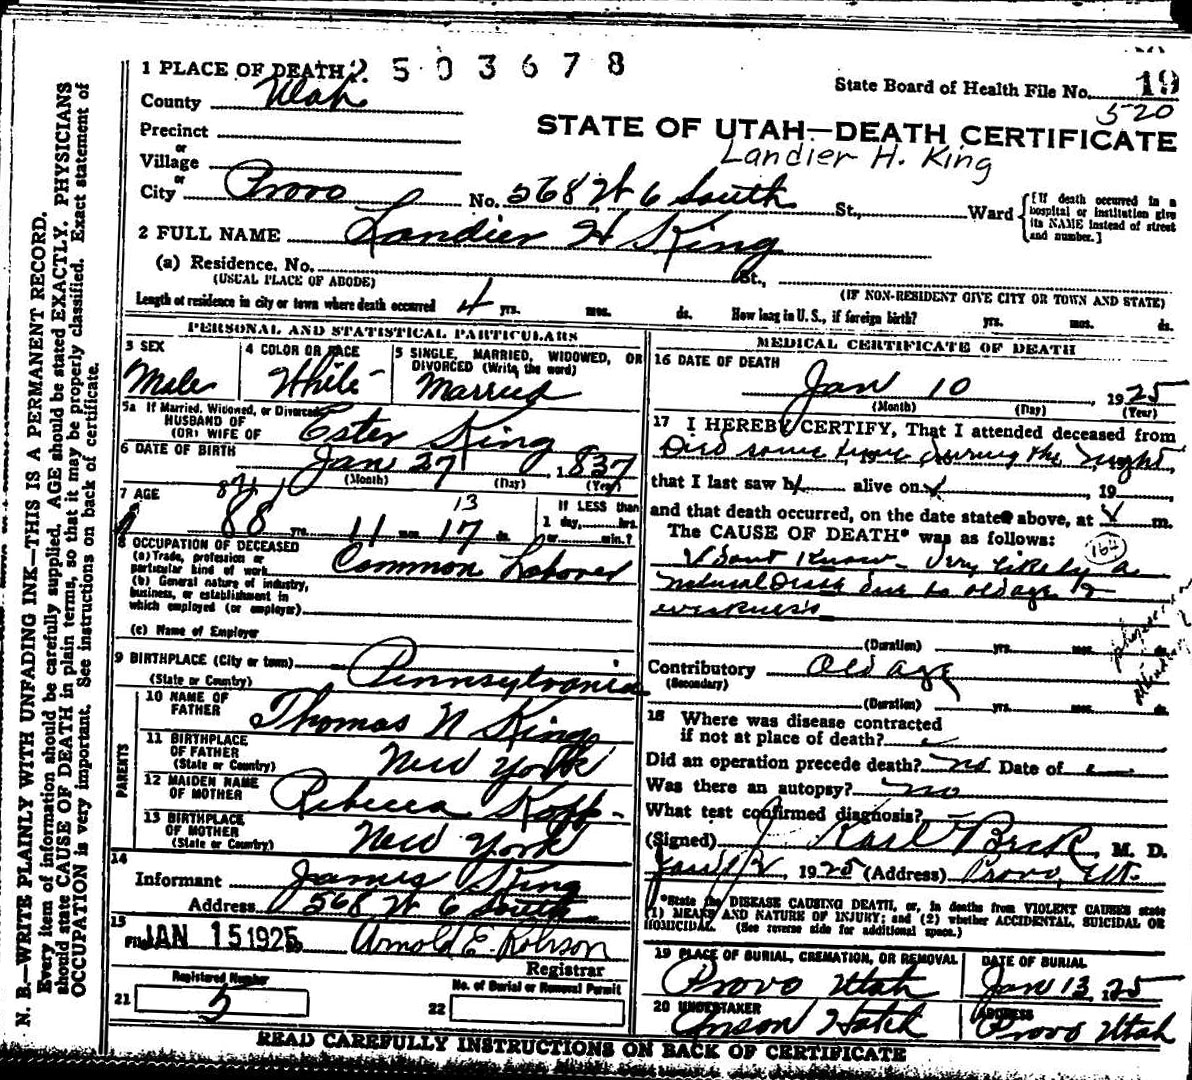 1 PLACE OF DEATH 2 5 0 3 6 7 8
State Board of Health File No. 19
520
County Utah
STATE OF UTAH—DEATH CERTIFICATE
Landier H. King
Precinct
or
Village
or
City Provo No. 568 W 6 South St., Ward { [If death occurred in a hospital or institution give its NAME instead of street and number.]
2 FULL NAME Landier H King
(a) Residence. No. St.,
(USUAL PLACE OF ABODE) (IF NON-RESIDENT GIVE CITY OR TOWN AND STATE)
Length of residence in city or town where death occurred 4 yrs. mos. ds. How long in U. S., if foreign birth? yrs. mos. ds.
PERSONAL AND STATISTICAL PARTICULARS
3 SEX
Male
4 COLOR OR RACE
White
5 SINGLE, MARRIED, WIDOWED, OR
DIVORCED (Write the word)
Married
5a If Married, Widowed, or Divorced
HUSBAND OF
(OR) WIFE OF Ester King
6 DATE OF BIRTH Jan 27, 1837
(Month) (Day) (Year)
7 AGE
88 yrs. 11 mos. 17 ds.
13
If LESS than
1 day, hrs.
or min.?
8 OCCUPATION OF DECEASED
(a) Trade, profession or
particular kind of work Common Laborer
(b) General nature of industry,
business, or establishment in
which employed (or employer)
(c) Name of Employer
9 BIRTHPLACE (City or town)
(State or Country) Pennsylvania
PARENTS
10 NAME OF
FATHER Thomas N King
11 BIRTHPLACE
OF FATHER
(State or Country) New York
12 MAIDEN NAME
OF MOTHER Rebecca
13 BIRTHPLACE
OF MOTHER
(State or Country) New York
14
Informant James King
Address 568 W 6 South
15
Filed JAN 15 1925 Arnold E. Robison
Registrar
Registered Number
21 5
No. of Burial or Removal Permit
22
MEDICAL CERTIFICATE OF DEATH
16 DATE OF DEATH
Jan 10, 1925
(Month) (Day) (Year)
17 I HEREBY CERTIFY, That I attended deceased from
Died some time during the night,
that I last saw h alive on , 19
and that death occurred, on the date stated above, at m.
The CAUSE OF DEATH* was as follows:
164
Dont Know - Very likely a
natural Death due to old age &
weakness
(Duration) yrs. mos. ds.
Contributory Old age
(Secondary)
(Duration) yrs. mos. ds.
18 Where was disease contracted
if not at place of death?
Did an operation precede death? no Date of
Was there an autopsy? no
What test confirmed diagnosis?
(Signed) Karl Beck, M. D.
, 1925 (Address) Provo, Ut.
*State the DISEASE CAUSING DEATH, or, in deaths from VIOLENT CAUSES state
(1) MEANS AND NATURE OF INJURY; and (2) whether ACCIDENTAL, SUICIDAL OR
HOMICIDAL. (See reverse side for additional space.)
19 PLACE OF BURIAL, CREMATION, OR REMOVAL
Provo Utah
DATE OF BURIAL
Jan 13, 1925
20 UNDERTAKER
Anson Hatch
ADDRESS
Provo Utah
READ CAREFULLY INSTRUCTIONS ON BACK OF CERTIFICATE
N. B.—WRITE PLAINLY WITH UNFADING INK—THIS IS A PERMANENT RECORD.
Every item of information should be carefully supplied. AGE should be stated EXACTLY. PHYSICIANS
should state CAUSE OF DEATH in plain terms, so that it may be properly classified. Exact statement of
OCCUPATION is very important. See instructions on back of certificate.